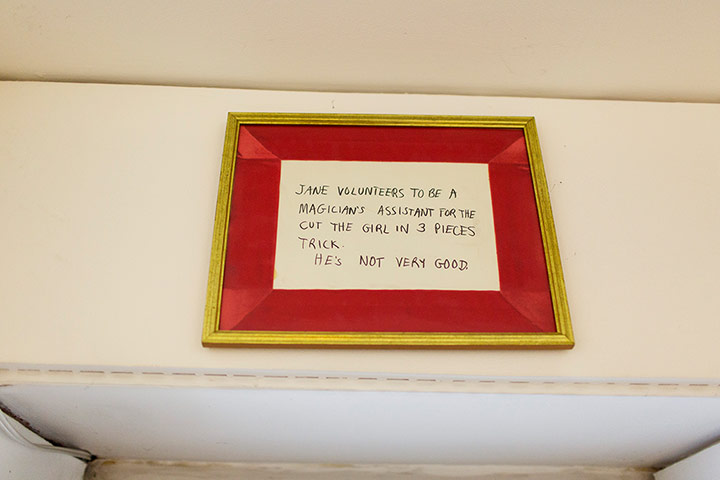 JANE VOLUNTEERS TO BE A
MAGICIAN'S ASSISTANT FOR THE
CUT THE GIRL IN 3 PIECES
TRICK.
HE'S NOT VERY GOOD.